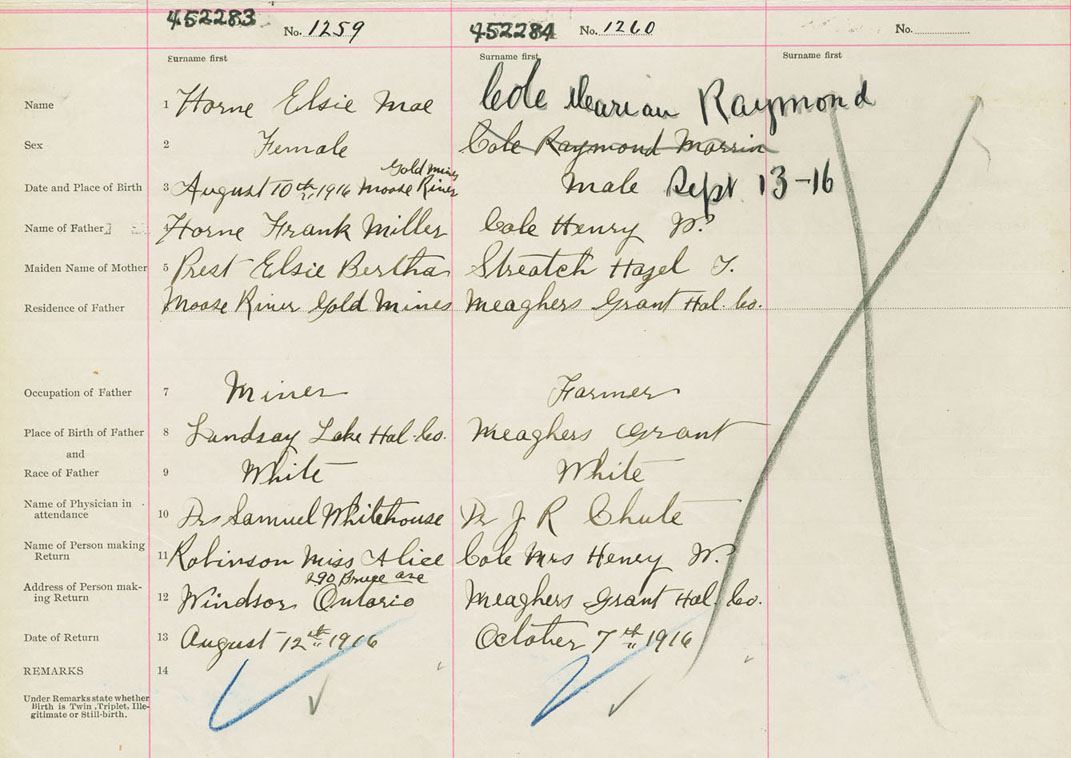 452283 No. 1259 452284 No. 1260 No.
Surname first Surname first Surname first
Name 1 Horne Elsie Mae Cole Marian Raymond
Sex 2 Female Cole Raymond Marrin
Gold Mines
Date and Place of Birth 3 August 10th 1916 Moose River Male Sept 13-16
Name of Father 4 Horne Frank Miller Cole Henry W.
Maiden Name of Mother 5 Prest Elsie Bertha Streatch Hazel T.
Residence of Father Moose River Gold Mines Meaghers Grant Hal. Co.
Occupation of Father 7 Miner Farmer
Place of Birth of Father 8 Lindsay Lake Hal. Co. Meaghers Grant
and
Race of Father 9 White White
Name of Physician in
attendance 10 Drs Samuel Whitehouse Dr J R Chute
Name of Person making
Return 11 Robinson Miss Alice Cole Mrs Henry W.
290 Bruce ave
Address of Person mak-
ing Return 12 Windsor Ontario Meaghers Grant Hal. Co.
Date of Return 13 August 12th 1916 October 7th 1916
REMARKS 14
Under Remarks state whether
Birth is Twin, Triplet, Ille-
gitimate or Still-birth.